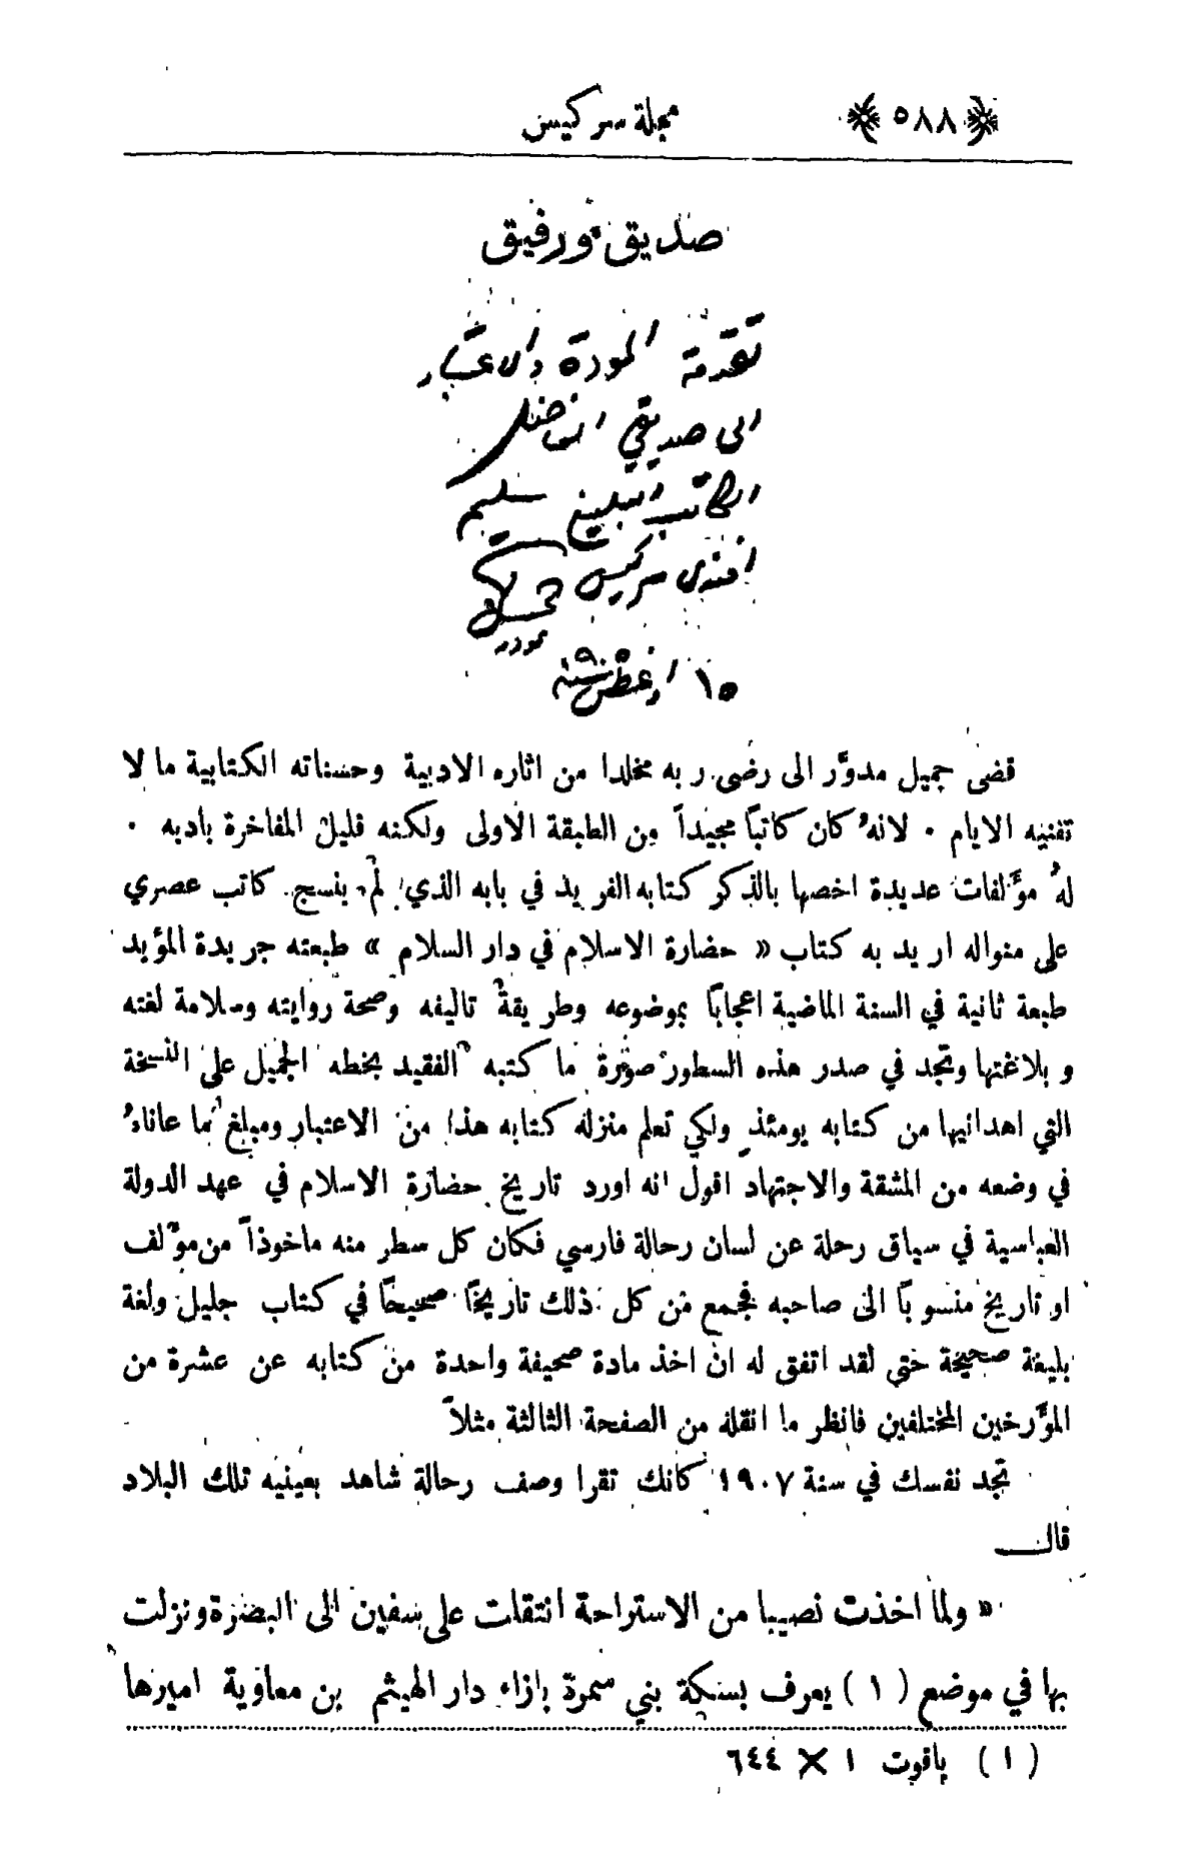 ﴿ ٥٨٨ ﴾ مجلة سركيس
صديق ورفيق
تقدمة المودة والاعتبار
الى صديقي الفاضل
الكاتب البليغ سليم
افندي سركيس جميل
مدور
١٥ اغسطس سنة ٩٠٥
قضى جميل مدوَّر الى رضى ربه مخلدا من اثاره الادبية وحسناته الكتابية ما لا
تفنيه الايام . لانهُ كان كاتباً مجيداً من الطبقة الاولى ولكنه قليل المفاخرة بادبه .
لهُ مؤَلفات عديدة اخصها بالذكر كتابه الفريد في بابه الذي لم ينسج كاتب عصري
على منواله اريد به كتاب « حضارة الاسلام في دار السلام » طبعته جريدة المؤيد
طبعة ثانية في السنة الماضية اعجاباً بموضوعه وطريقة تاليفه وصحة روايته وسلامة لغته
وبلاغتها وتجد في صدر هذه السطور صورة ما كتبه الفقيد بخطه الجميل على النسخة
التي اهدانيها من كتابه يومئذٍ ولكي تعلم منزلة كتابه هذا من الاعتبار ومبلغ ما عاناهُ
في وضعه من المشقة والاجتهاد اقول انه اورد تاريخ حضارة الاسلام في عهد الدولة
العباسية في سياق رحلة عن لسان رحالة فارسي فكان كل سطر منه ماخوذاً من مؤلف
او تاريخ منسوباً الى صاحبه فجمع من كل ذلك تاريخاً صحيحاً في كتاب جليل ولغة
بليغة صحيحة حتى لقد اتفق له ان اخذ مادة صحيفة واحدة من كتابه عن عشرة من
المؤَرخين المختلفين فانظر ما انقله من الصفحة الثالثة مثلاً
تجد نفسك في سنة ١٩٠٧ كانك تقرا وصف رحالة شاهد بعينيه تلك البلاد
قال
« ولما اخذت نصيبا من الاستراحة انتقلت على سفين الى البصرة ونزلت
بها في موضع ( ١ ) يعرف بسكة بني سمرة بازاء دار الهيثم بن معاوية اميرها
( ١ ) ياقوت ١ × ٦٤٤